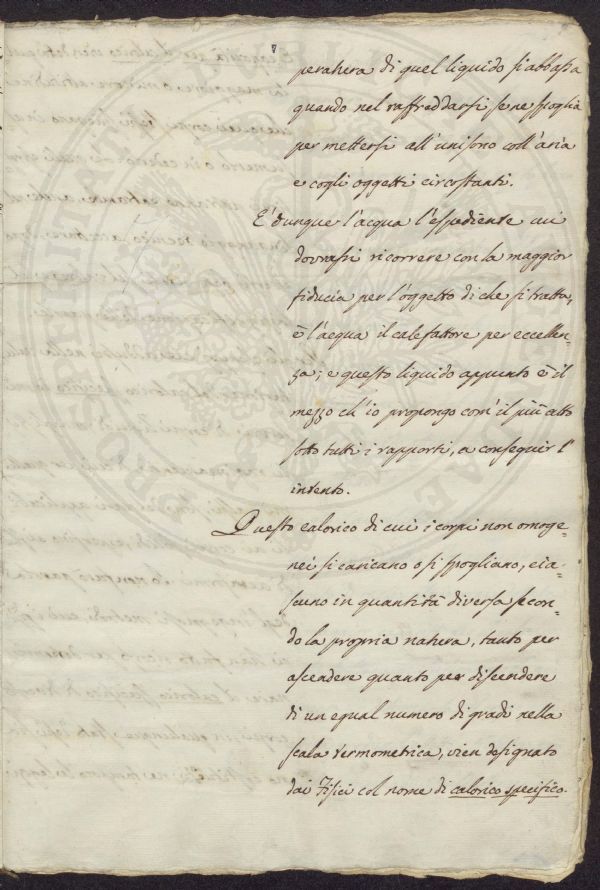 7
peratura di quel liquido si abbassa
quando nel raffreddarsi se ne spoglia
per mettersi all'unisono coll'aria
e cogli oggetti circostanti.
E' dunque l'acqua l'espediente cui
dovrassi ricorrere con la maggior
fiducia per l'oggetto di che si tratta,
è l'acqua il calefattore per eccellen-
za; e questo liquido appunto è il
mezzo ch'io propongo com'il più atto
sotto tutti i rapporti, a conseguir l'
intento.
Questo calorico di cui i corpi non omoge-
nei si caricano o si spogliano, cia-
scuno in quantità diversa secon-
do la propria natura, tanto per
ascendere quanto per discendere
di un egual numero di gradi nella
scala termometrica, vien designato
dai Fisici col nome di calorico specifico.